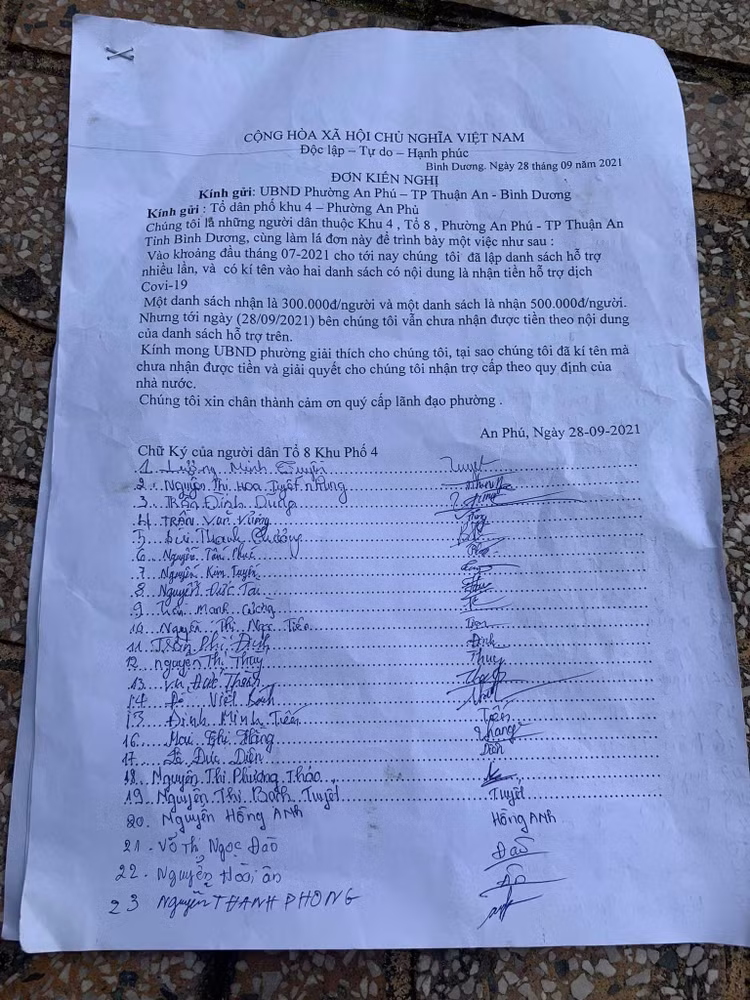 CỘNG HÒA XÃ HỘI CHỦ NGHĨA VIỆT NAM
Độc lập – Tự do – Hạnh phúc
Bình Dương. Ngày 28 tháng 09 năm 2021
ĐƠN KIẾN NGHỊ
Kính gửi: UBND Phường An Phú – TP Thuận An - Bình Dương
Kính gửi : Tổ dân phố khu 4 – Phường An Phú
Chúng tôi là những người dân thuộc Khu 4 , Tổ 8 , Phường An Phú - TP Thuận An
Tỉnh Bình Dương, cùng làm lá đơn này để trình bày một việc như sau :
Vào khoảng đầu tháng 07-2021 cho tới nay chúng tôi đã lập danh sách hỗ trợ
nhiều lần, và có kí tên vào hai danh sách có nội dung là nhận tiền hỗ trợ dịch
Covi-19
Một danh sách nhận là 300.000đ/người và một danh sách là nhận 500.000đ/người.
Nhưng tới ngày (28/09/2021) bên chúng tôi vẫn chưa nhận được tiền theo nội dung
của danh sách hỗ trợ trên.
Kính mong UBND phường giải thích cho chúng tôi, tại sao chúng tôi đã kí tên mà
chưa nhận được tiền và giải quyết cho chúng tôi nhận trợ cấp theo quy định của
nhà nước.
Chúng tôi xin chân thành cảm ơn quý cấp lãnh đạo phường .
An Phú, Ngày 28-09-2021
Chữ Ký của người dân Tổ 8 Khu Phố 4
1 Minh Tuyết
2 Nguyễn Thị Hoa Tuyết Nhung
3 Trần Đình Dung
4 Trần Văn Vững
5 Bùi Thanh Cường
6 Nguyễn Tấn Phú
7 Nguyễn Kim Tuyến
8 Nguyễn Đức Tài
9 Mạnh Cường
10 Nguyễn Thị Ngọc Tiên Tiên
11 Trần Phi Định Định
12 Nguyễn Thị Thủy Thủy
13 Vũ Đức
14 Đỗ Viết
15 Đinh Minh Tiến Tiến
16 Mai Thị Hằng Hằng
17 Diên Diên
18. Nguyễn Thị Phương Thảo
19 Nguyễn Thị Bạch Tuyết Tuyết
20. Nguyễn Hồng Anh Hồng Anh
21. Võ Thị Ngọc Đào Đào
22. Nguyễn Hoài Ân Ân
23 Nguyễn THANH PHONG